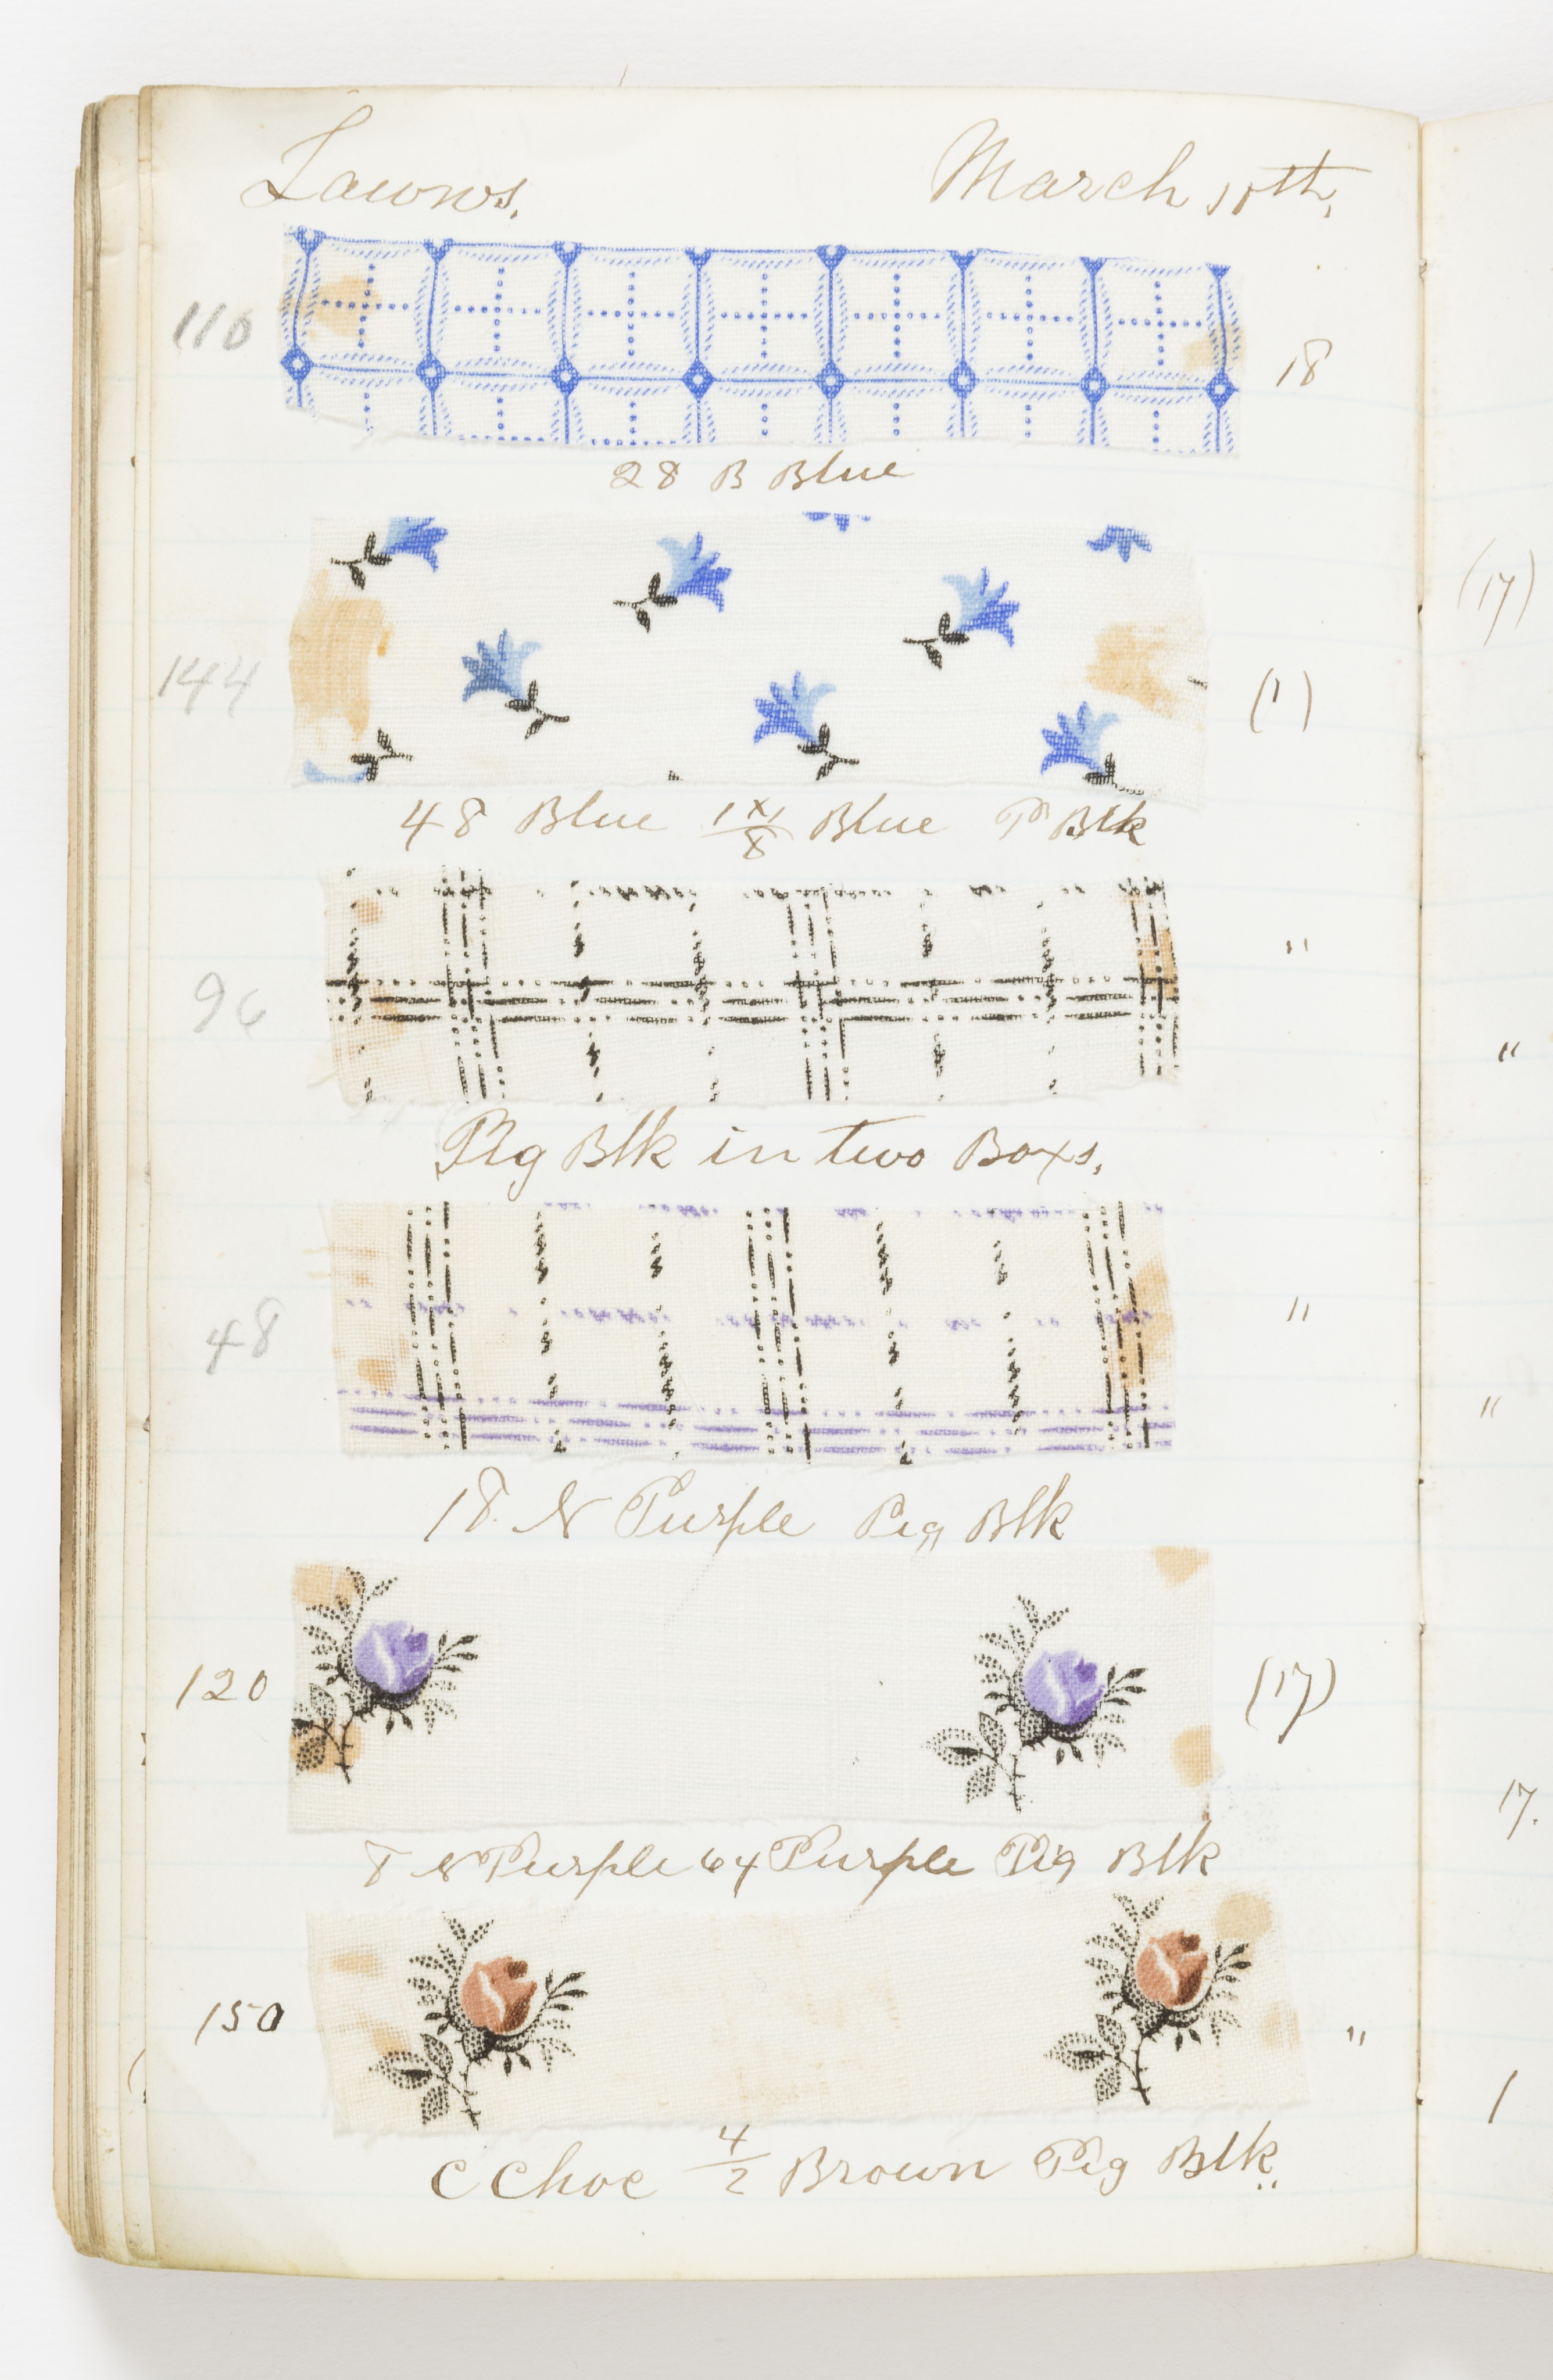 Lawns. March 15th.
110
18
28 B Blue
144
(1)
48 Blue 1 x 1/8 Blue P Blk
96
"
Pig Blk in two Boxs.
48
"
18 N Purple Pig Blk
120
(17)
8 N Purple 64 Purple Pig Blk
150
"
C Choc 4/2 Brown Pig Blk..
(17)
"
"
17.
1